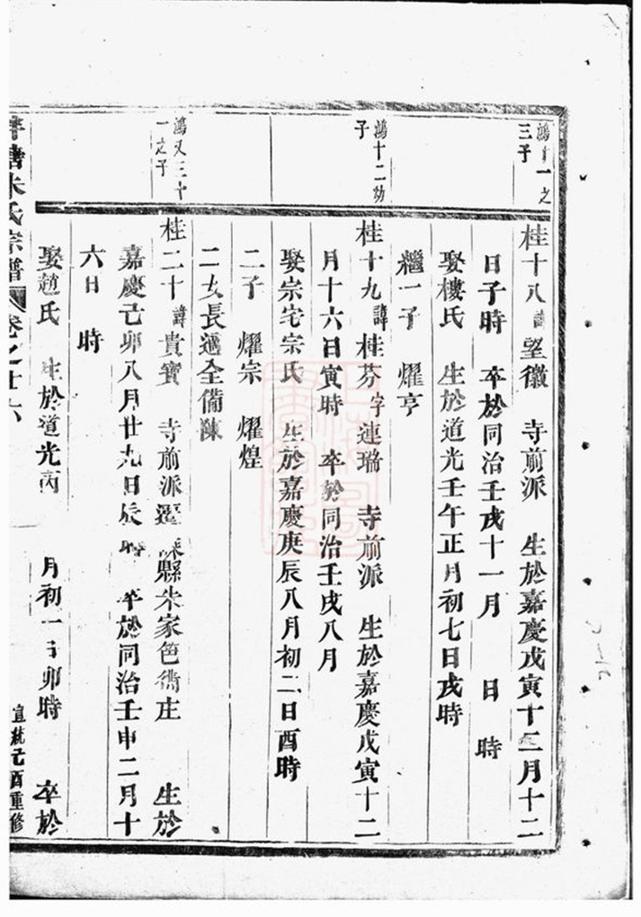 鴻十一之
三子
桂十八諱望徽 寺前派 生於嘉慶戊寅十二月十二
日子時 卒於同治壬戌十一月 日 時
娶樓氏 生於道光壬午正月初七日戌時
繼一子 燿亨
鴻十二幼
子
桂十九諱桂芬字連瑞 寺前派 生於嘉慶戊寅十二
月十六日寅時 卒於同治壬戌八月
娶宗宅宗氏 生於嘉慶庚辰八月初二日酉時
二子 燿宗 燿煌
二女長適全備陳
鴻又三十
一之子
桂二十諱貴寶 寺前派遷 縣朱家 莊 生於
嘉慶己卯八月廿九日辰時 卒於同治壬申二月十
六日 時
娶趙氏 生於道光丙 月初一日卯時 卒於
塘朱氏宗譜 卷之廿六
宣統己酉重修